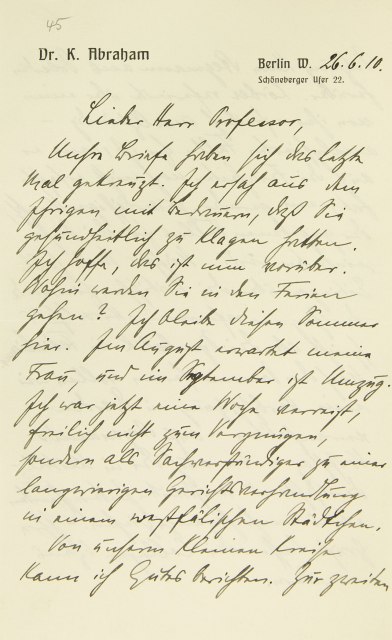 45
Dr. K. Abraham
Berlin W. 26.6.10.
Schöneberger Ufer 22.
Lieber Herr Professor,
Unsre Briefe haben sich das letzte
Mal gekreuzt. Ich ersah aus dem
Ihrigen mit Bedauern, daß Sie
gesundheitlich zu klagen hatten.
Ich hoffe, das ist nun vorüber.
Wohin werden Sie in den Ferien
gehen? Ich bleibe diesen Sommer
hier. Im August erwartet meine
Frau, und im September ist Umzug.
Ich war jetzt eine Woche verreist,
freilich nicht zum Vergnügen,
sondern als Sachverständiger zu einer
langwierigen Gerichtsverhandlung
in einem westfälischen Städtchen.
Von unserm kleinen Kreise
kann ich Gutes berichten. Zur zweiten